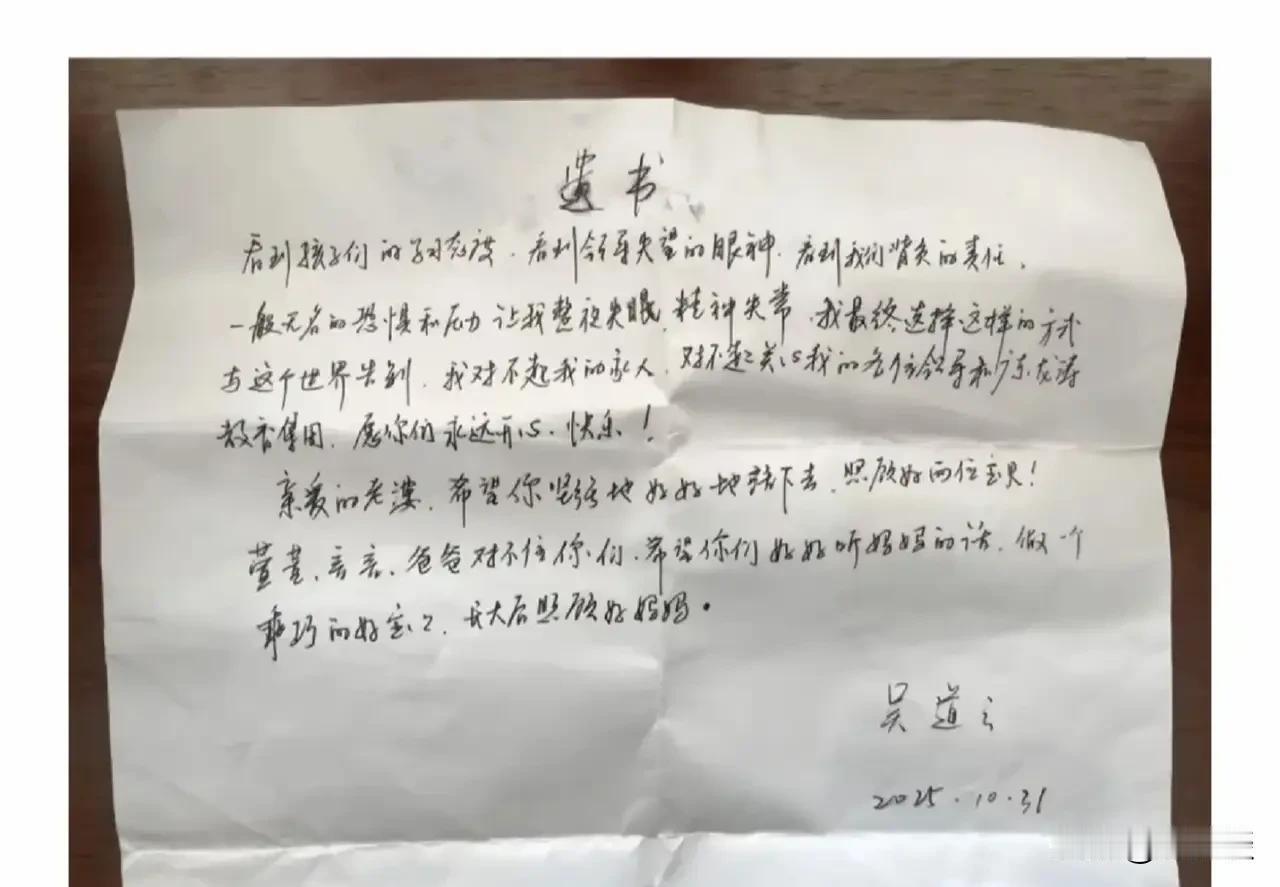 遗书
看到孩子们的学习态度、看到领导失望的眼神、看到我们背负的责任、
一般无名的恐惧和压力让我整夜失眠、精神失常、我最终选择这样的方式
与这个世界告别、我对不起我的家人、对不起关心我的各位领导和广东龙涛
教育集团、愿你们永远开心、快乐！
亲爱的老婆、希望你坚强地好好地活下去、照顾好两位宝贝！
萱萱、言言、爸爸对不住你们、希望你们好好听妈妈的话、做一个
乖巧的好宝宝、长大后照顾好妈妈。
吴道
2025.10.31